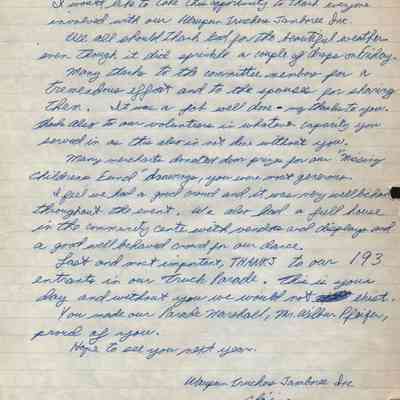 I would like to take this opportunity to thank everyone
involved with our Waupun Truckers Jamboree Inc.
We all should thank God for the beautiful weather
even though it did sprinkle a couple of drops on Friday.
Many thanks to the committee members for a
tremendous effort and to the spouses for sharing
them. It was a job well done - my thanks to you.
Thanks also to our volunteers in whatever capacity you
served in as this also is not done without you.
Many merchants donated door prizes for our "Missing
Childrens Fund" drawings, you were most generous.
I feel we had a good crowd and it was very well behaved
throughout the event. We also had a full house
in the community center with vendors and displays and
a good well behaved crowd for our dance.
Last and most important, THANKS to our 193
entrants in our Truck Parade. This is your
day and without you we would not exist.
You made our Parade Marshall, Mr. Wilbur Pfeifer,
proud of you.
Hope to see you next year.
Waupun Truckers Jamboree Inc